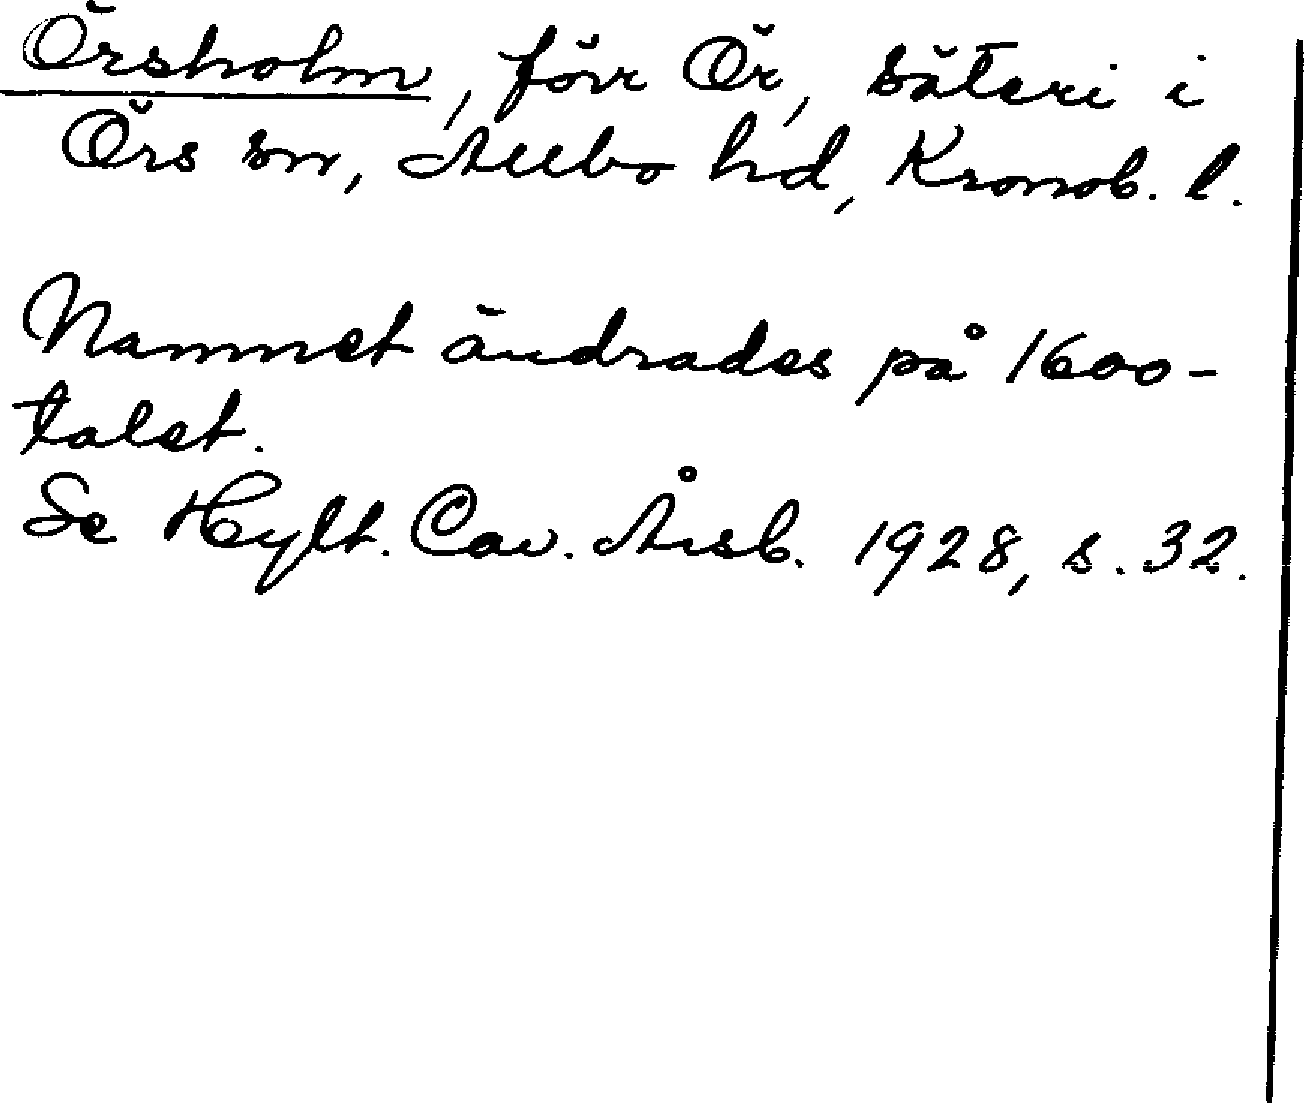 Örsholm, förr Ör, säteri i
Örs sn, Allbo hd, Kronob. l.
Namnet ändrades på 1600-
talet.
Se Hylt. Cav. Årsb. 1928, s. 32.